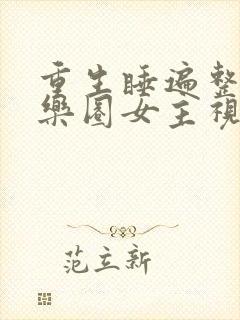 重生睡遍整
樂圈女主視
范立新